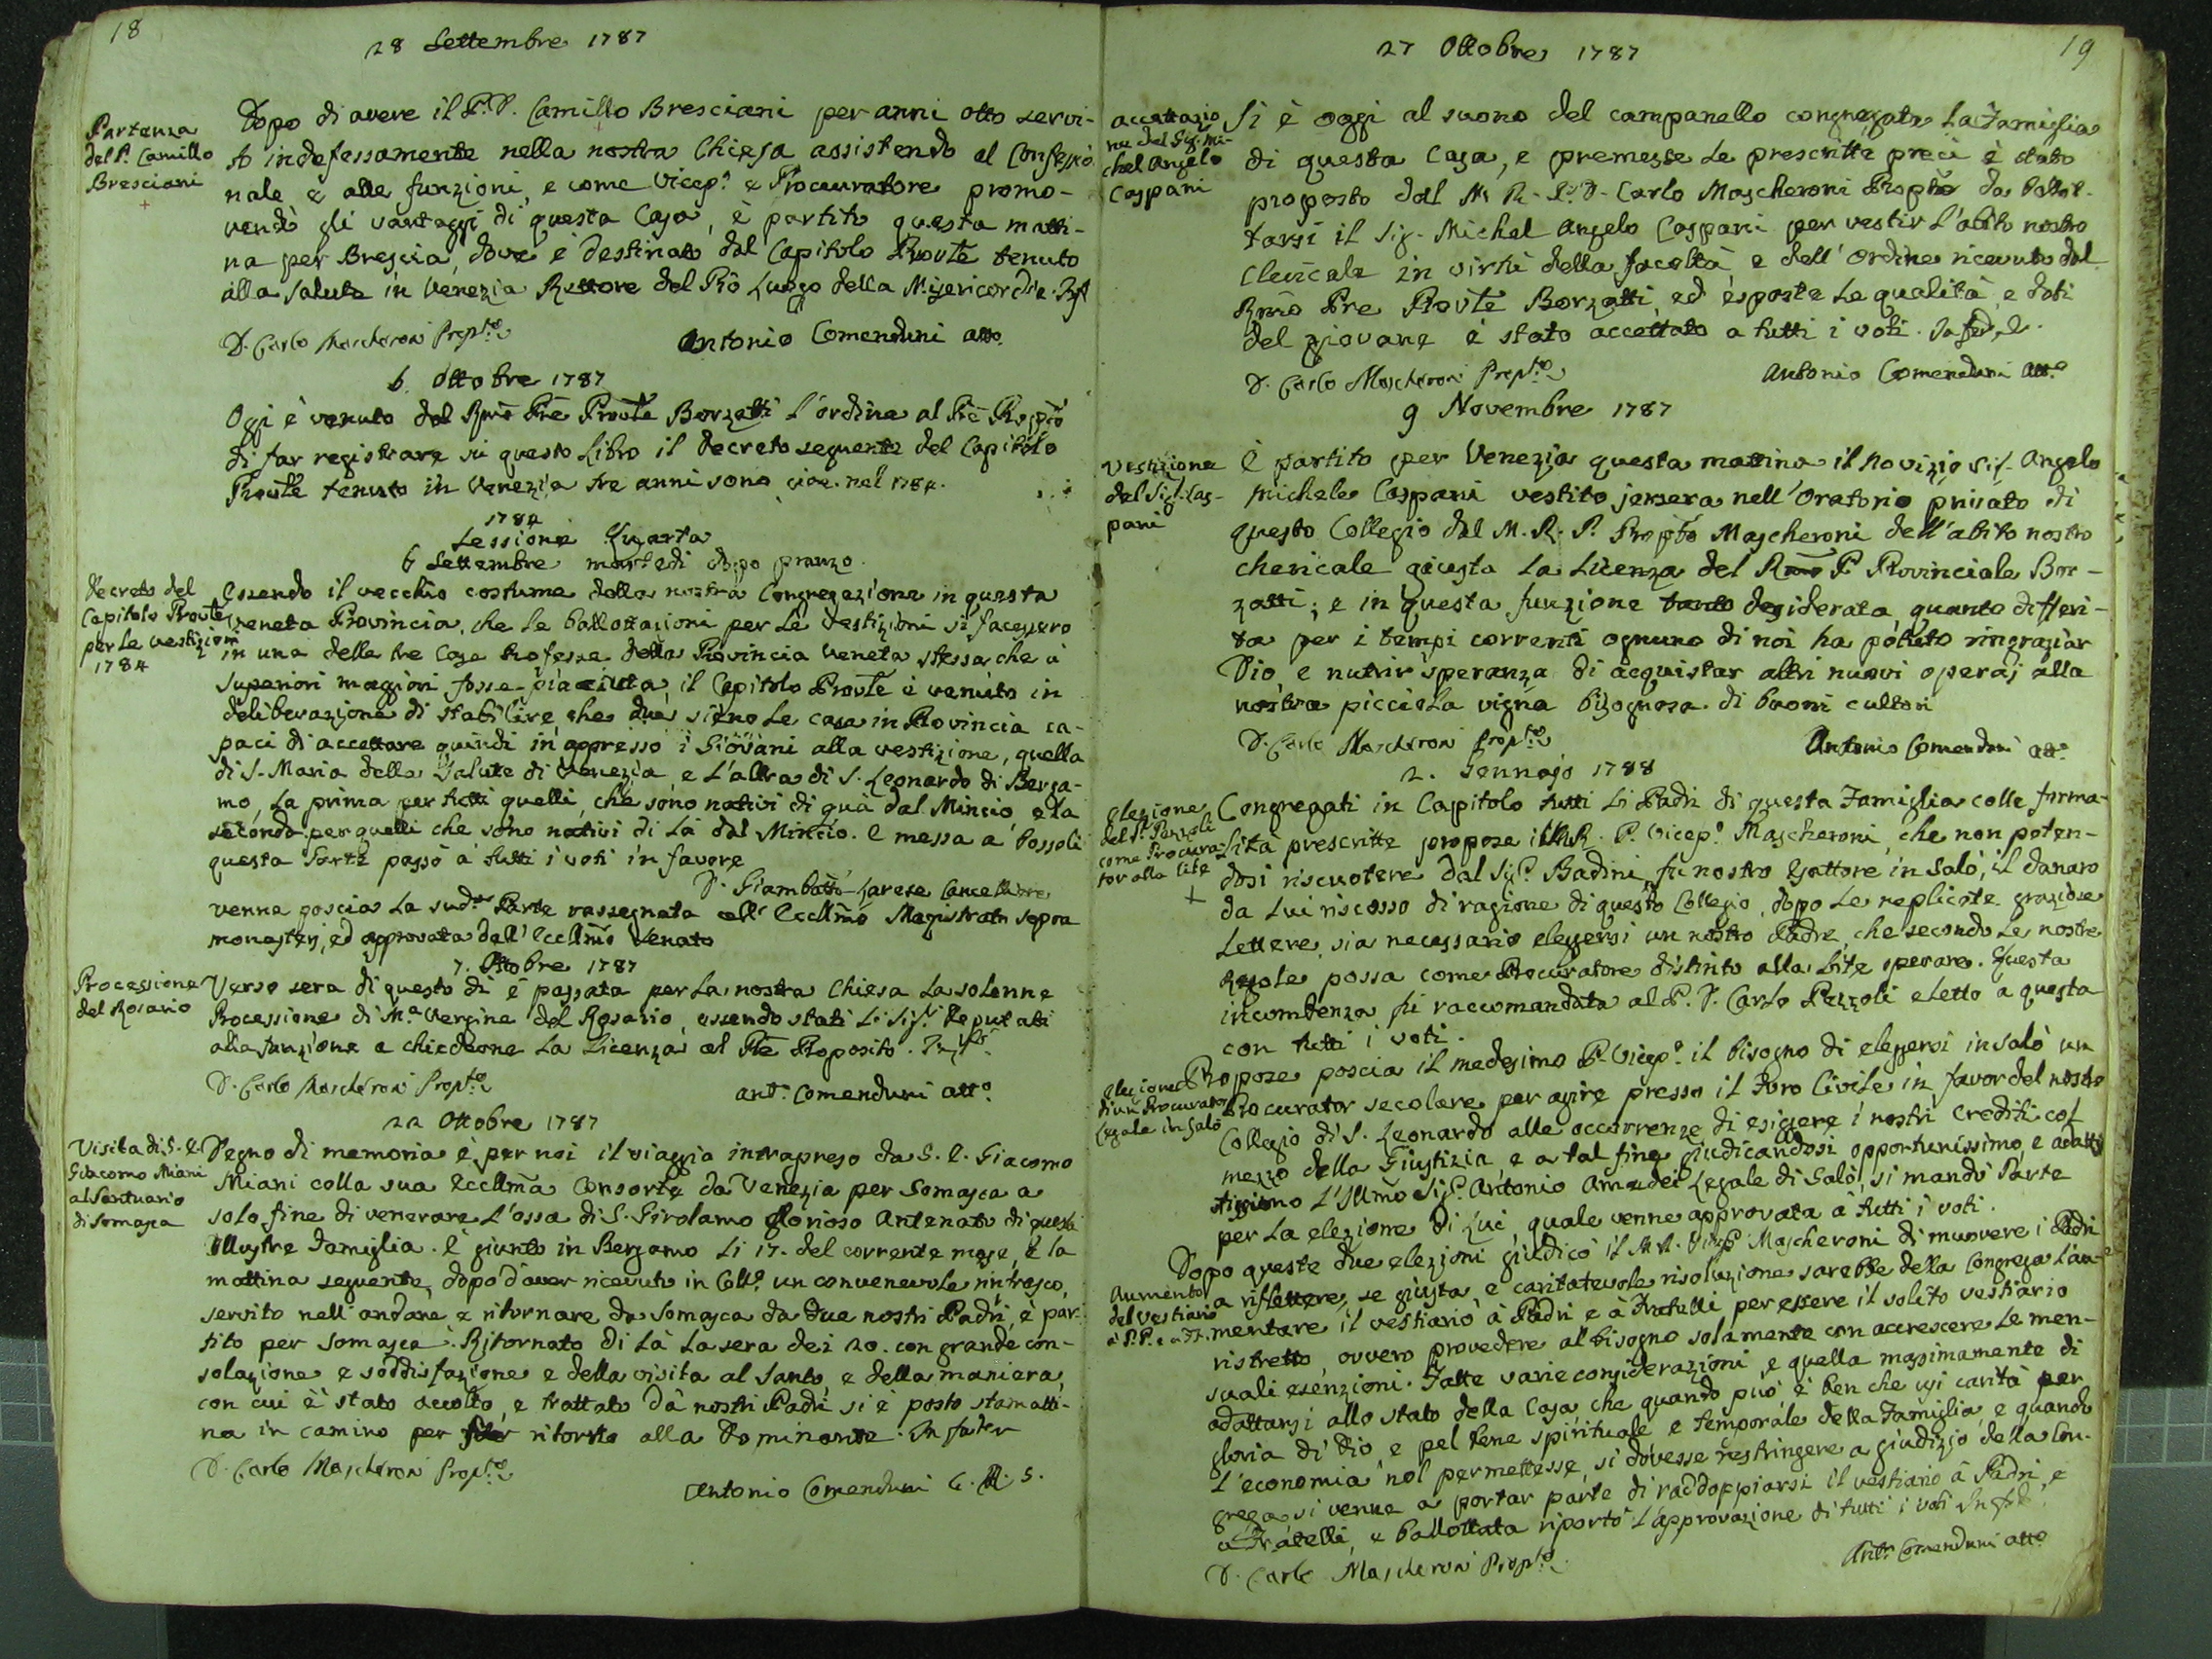 18
28 Settembre 1787
Partenza
del P. Camillo
Bresciani
+
Dopo di avere il P. D. Camillo Bresciani per anni otto servi-
to indefessamente nella nostra Chiesa assistendo al Confessio
nale e alle funzioni, e come Vicep.º e Procuratore promo-
vendo gli vantaggi di questa Casa, è partito questa matti-
na per Brescia, dove e destinato dal Capitolo Provle tenuto
alla Salute in Venezia Rettore del Pio Luogo della Misericordia
D. Carlo Mascheroni Prep.to
Antonio Comenduni atto.
6 Ottobre 1787
Oggi è venuto dal Rmo Pre Provle Borzatti l'ordine al Pre Propto
di far registrare su questo Libro il decreto seguente del Capitolo
Provle tenuto in Venezia tre anni sono cioe nel 1784.
1784
Sessione Quarta
6 Settembre martedi dopo pranzo.
Decreto del
Capitolo Provle
per le vestizioni
1784
Essendo il vecchio costume della nostra Congregazione in questa
Veneta Provincia, che le ballottazioni per le Vestizioni si facessero
in una delle tre Case Professe della Provincia Veneta stessa che à
Superiori magiori fosse piaciuta, il Capitolo Provle è venuto in
deliberazione di stabilire che due sieno le case in Provincia ca-
paci di accettare quindi in appresso i Giovani alla vestizione, quella
di S. Maria della Salute di Venezia e l'altra di S. Leonardo di Berga-
mo, la prima per tutti quelli, che sono nativi di quà dal Mincio, e la
seconda per quelli che sono nativi di là dal Mincio. E messa a' bossoli
questa Parte passò a tutti i voti in favore
D. Giambatta Varese Cancelliere
venne poscia la sud.ª Parte rassegnata all' Eccllmo Magistrato sopra
monasterj, ed approvata dall' Eccllmo Senato
7. Ottobre 1787
Processione
del Rosario
Verso sera di questo dì è passata per la nostra Chiesa la solenne
Processione di M.ª Vergine del Rosario, essendo stati li Sig.ri Deputati
alla funzione a chiederne la Licenza al Pre Preposito.
D. Carlo Mascheroni Prop.to
Ant.º Comenduni att.º
22 Ottobre 1787
Visita di S. E.
Giacomo Miani
al Santuario
di Somasca
Degno di memoria è per noi il viaggio intrapreso da S. E. Giacomo
Miani colla sua Eccllma Consorte da Venezia per Somasca a
solo fine di venerare l'ossa di S. Girolamo glorioso Antenato di questa
Illustre Famiglia. È giunto in Bergamo li 17. del corrente mese, e la
mattina seguente, dopo d'aver ricevuto in Coll.º un convenevole rinfresco,
servito nell' andare e ritornare da Somasca da due nostri Padri, è par-
tito per Somasca. Ritornato di là la sera dei 20. con grande con-
solazione e soddisfazione e della visita al Santo e della maniera,
con cui è stato accolto, e trattato da nostri Padri si è posto stamatti-
na in camino per far ritorno alla Dominante. In fede
D. Carlo Mascheroni Prop.to
Antonio Comenduni C. R. S.
19
27 Ottobre 1787
accettazio
ne del Sig. Mi-
chel Angelo
Caspani
Si è oggi al suono del campanello congregata la Famiglia
di questa Casa, e premesse le prescritte preci è stato
proposto dal M. R. P. D. Carlo Mascheroni Propto da ballot-
tarsi il Sig. Michel Angelo Caspani per vestir l'abito nostro
Clericale in virtù della facoltà e dell' Ordine ricevuto dal
Rmo Pre Provle Borzatti, ed esposte le qualità, e doti
del giovane è stato accettato a tutti i voti. In fede.
D. Carlo Mascheroni Prep.to
Antonio Comenduni att.º
9 Novembre 1787
Vestizione
del Sig. Cas-
pani
È partito per Venezia questa mattina il Novizio Sig. Angelo
Michele Caspani vestito jersera nell' Oratorio privato di
questo Collegio dal M. R. P. Propto Mascheroni dell' abito nostro
chericale giusta la Licenza del Rmo P. Provinciale Bor-
zatti; e in questa funzione tanto desiderata, quanto differi-
ta per i tempi correnti ognuno di noi ha potuto ringraziar
Dio, e nutrir speranza di acquistar altri nuovi operaj alla
nostra picciola vigna bisognosa di buoni cultori
D. Carlo Mascheroni Prop.to
Antonio Comenduni att.º
2. Gennajo 1788
elezione
del P. Pezzoli
come Procura-
tor alla lite
+
Congregati in Capitolo tutti li Padri di questa Famiglia colle forma-
lità prescritte propose il M.R. P. Vicep.º Mascheroni, che non poten-
dosi riscuotere dal Sig.r Badini, fu nostro Fattore in Salò, il danaro
da lui riscosso di ragione di questo Collegio, dopo le replicate graziose
Lettere, sia necessario eleggersi un nostro Padre, che secondo le nostre
Regole possa come Procuratore distinto alla Lite operare. Questa
incombenza fù raccomandata al P. D. Carlo Pezzoli eletto a questa
con tutti i voti.
elezione
di un Procurator
Legale in Salò
Propose poscia il medesimo P. Vicep.º il bisogno di eleggersi in Salò un
Procurator secolare per agire presso il Foro Civile in favor del nostro
Collegio di S. Leonardo alle occorrenze di esigere i nostri Crediti col
mezzo della Giustizia, e a tal fine giudicandosi opportunissimo, e adatta
tissimo l'Illmo Sig.r Antonio Amadei Legale di Salò, si mandò Parte
per la elezione di Lui, quale venne approvata à tutti i voti.
Aumento
del Vestiario
a' P.P. e a' FF.
Dopo queste due elezioni giudicò il M.R. Vicep. Mascheroni di muovere i Padri
a riflettere, se giusta, e caritatevole risoluzione sarebbe della Congrega l'au-
mentare il vestiario à Padri e à Fratelli per essere il solito vestiario
ristretto, ovvero provedere al bisogno solamente con accrescere le men-
suali esenzioni. Fatte varie considerazioni, e quella massimamente di
adattarsi allo stato della Casa che quando può è ben che usi carità per
gloria di Dio e pel bene spirituale e temporale della Famiglia, e quando
l'economia nol permettesse, si dovesse restringere a giudizio della Con-
grega, si venne a portar parte di raddoppiarsi il vestiario à Padri, e
a Fratelli, e ballottata riportò l'approvazione di tutti i voti In fede
D. Carlo Mascheroni Prop.to
Ant.º Comenduni att.º